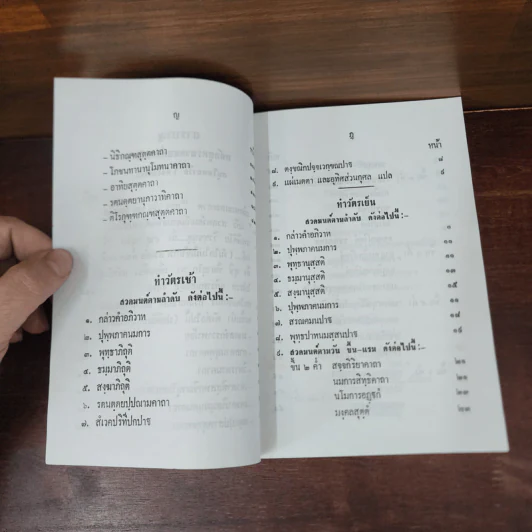 ญ
– นิธิกณฺฑสุตฺตคาถา
– โภชนทานานุโมทนาคาถา
– อาทิยสุตฺตคาถา
– รตนตฺตยานุภาวาทิคาถา
– ติโรกุฑฺฑกณฺฑสุตฺตคาถา
ทำวัตรเช้า
สวดมนต์ตามลำดับ ดังต่อไปนี้:-
๑. กล่าวคำอภิวาท
๒. ปุพฺพภาคนมการ
๓. พุทฺธาภิถุติ
๔. ธมฺมาภิถุติ
๕. สงฺฆาภิถุติ
๖. รตนตฺตยปฺปณามคาถา
๗. สํเวคปริกิตฺตนปาฐ
ฎ
หน้า
๘. ตงฺขณิกปจฺจเวกฺขณปาฐ ๘
๙. แผ่เมตตา และอุทิศส่วนกุศล แปล ๙
ทำวัตรเย็น
สวดมนต์ตามลำดับ ดังต่อไปนี้:-
๑. กล่าวคำอภิวาท
๒. ปุพฺพภาคนมการ ๑๑
๓. พุทฺธานุสฺสติ ๑๑
๔. ธมฺมานุสฺสติ ๑๓
๕. สงฺฆานุสฺสติ ๑๕
๖. ปุพฺพภาคนมการ
๗. สรณคมนปาฐ ๑๘
๘. พุทธปาทนมสฺสนปาฐ ๑๙
๙. สวดมนต์ตามวัน ขึ้น-แรม ดังต่อไปนี้:-
ขึ้น ๒ ค่ำ สจฺจกิริยาคาถา ๒๑
นมการสิทฺธิคาถา ๒๑
นโมการอฏฺฐกํ
มงฺคลสุตฺตํ ๒๓